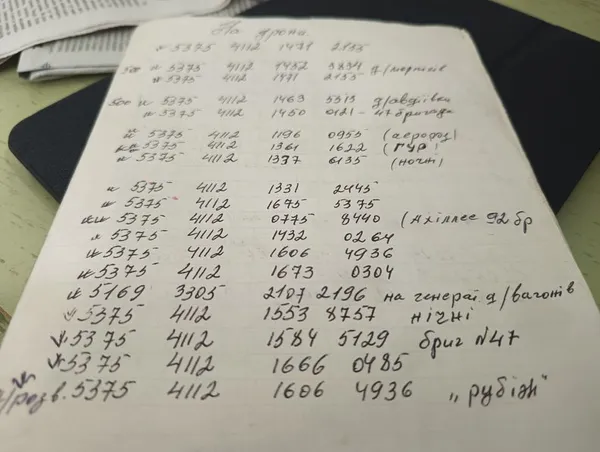 На дрони
* 5375 4112 1431 2155
500 * 5375 4112 1432 3834 д/морпіків
* 5375 4112 1971 2155
500 * 5375 4112 1463 5313 д/авдіївки
* 5375 4112 1450 0121 - 47 бригада
* 5375 4112 1196 0955 (аерофзу)
** 5375 4112 1361 1622 (ГУР)
* 5375 4112 1337 6135 (ночні)
* 5375 4112 1331 2445
* 5375 4112 1675 5375
** 5375 4112 0775 8440 (Ахіллес 92 бр
* 5375 4112 1432 0264
* 5375 4112 1606 4936
* 5375 4112 1673 0304
* 5169 3305 2107 2196 на генерат. д/вагонів
* 5375 4112 1553 8757 нічні
* 5375 4112 1584 5129 бриг N47
* 5375 4112 1666 0485
/розв. 5375 4112 1606 4936 „рубіж"